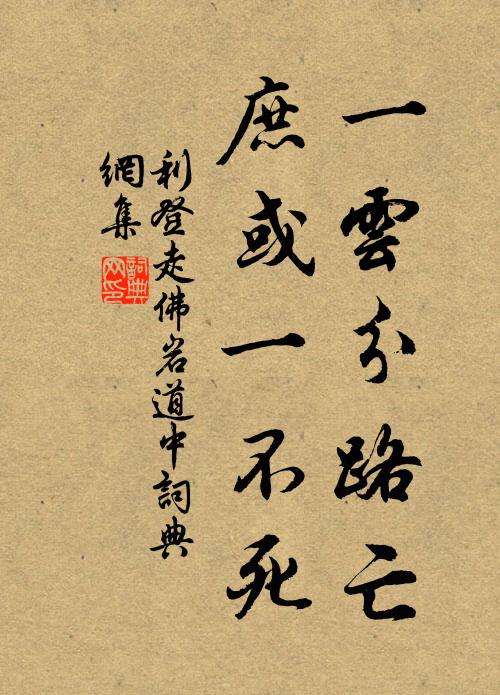 一雲分路亡
庶或一不死
利登走佛岩道中詞典
網集
詞典
网印